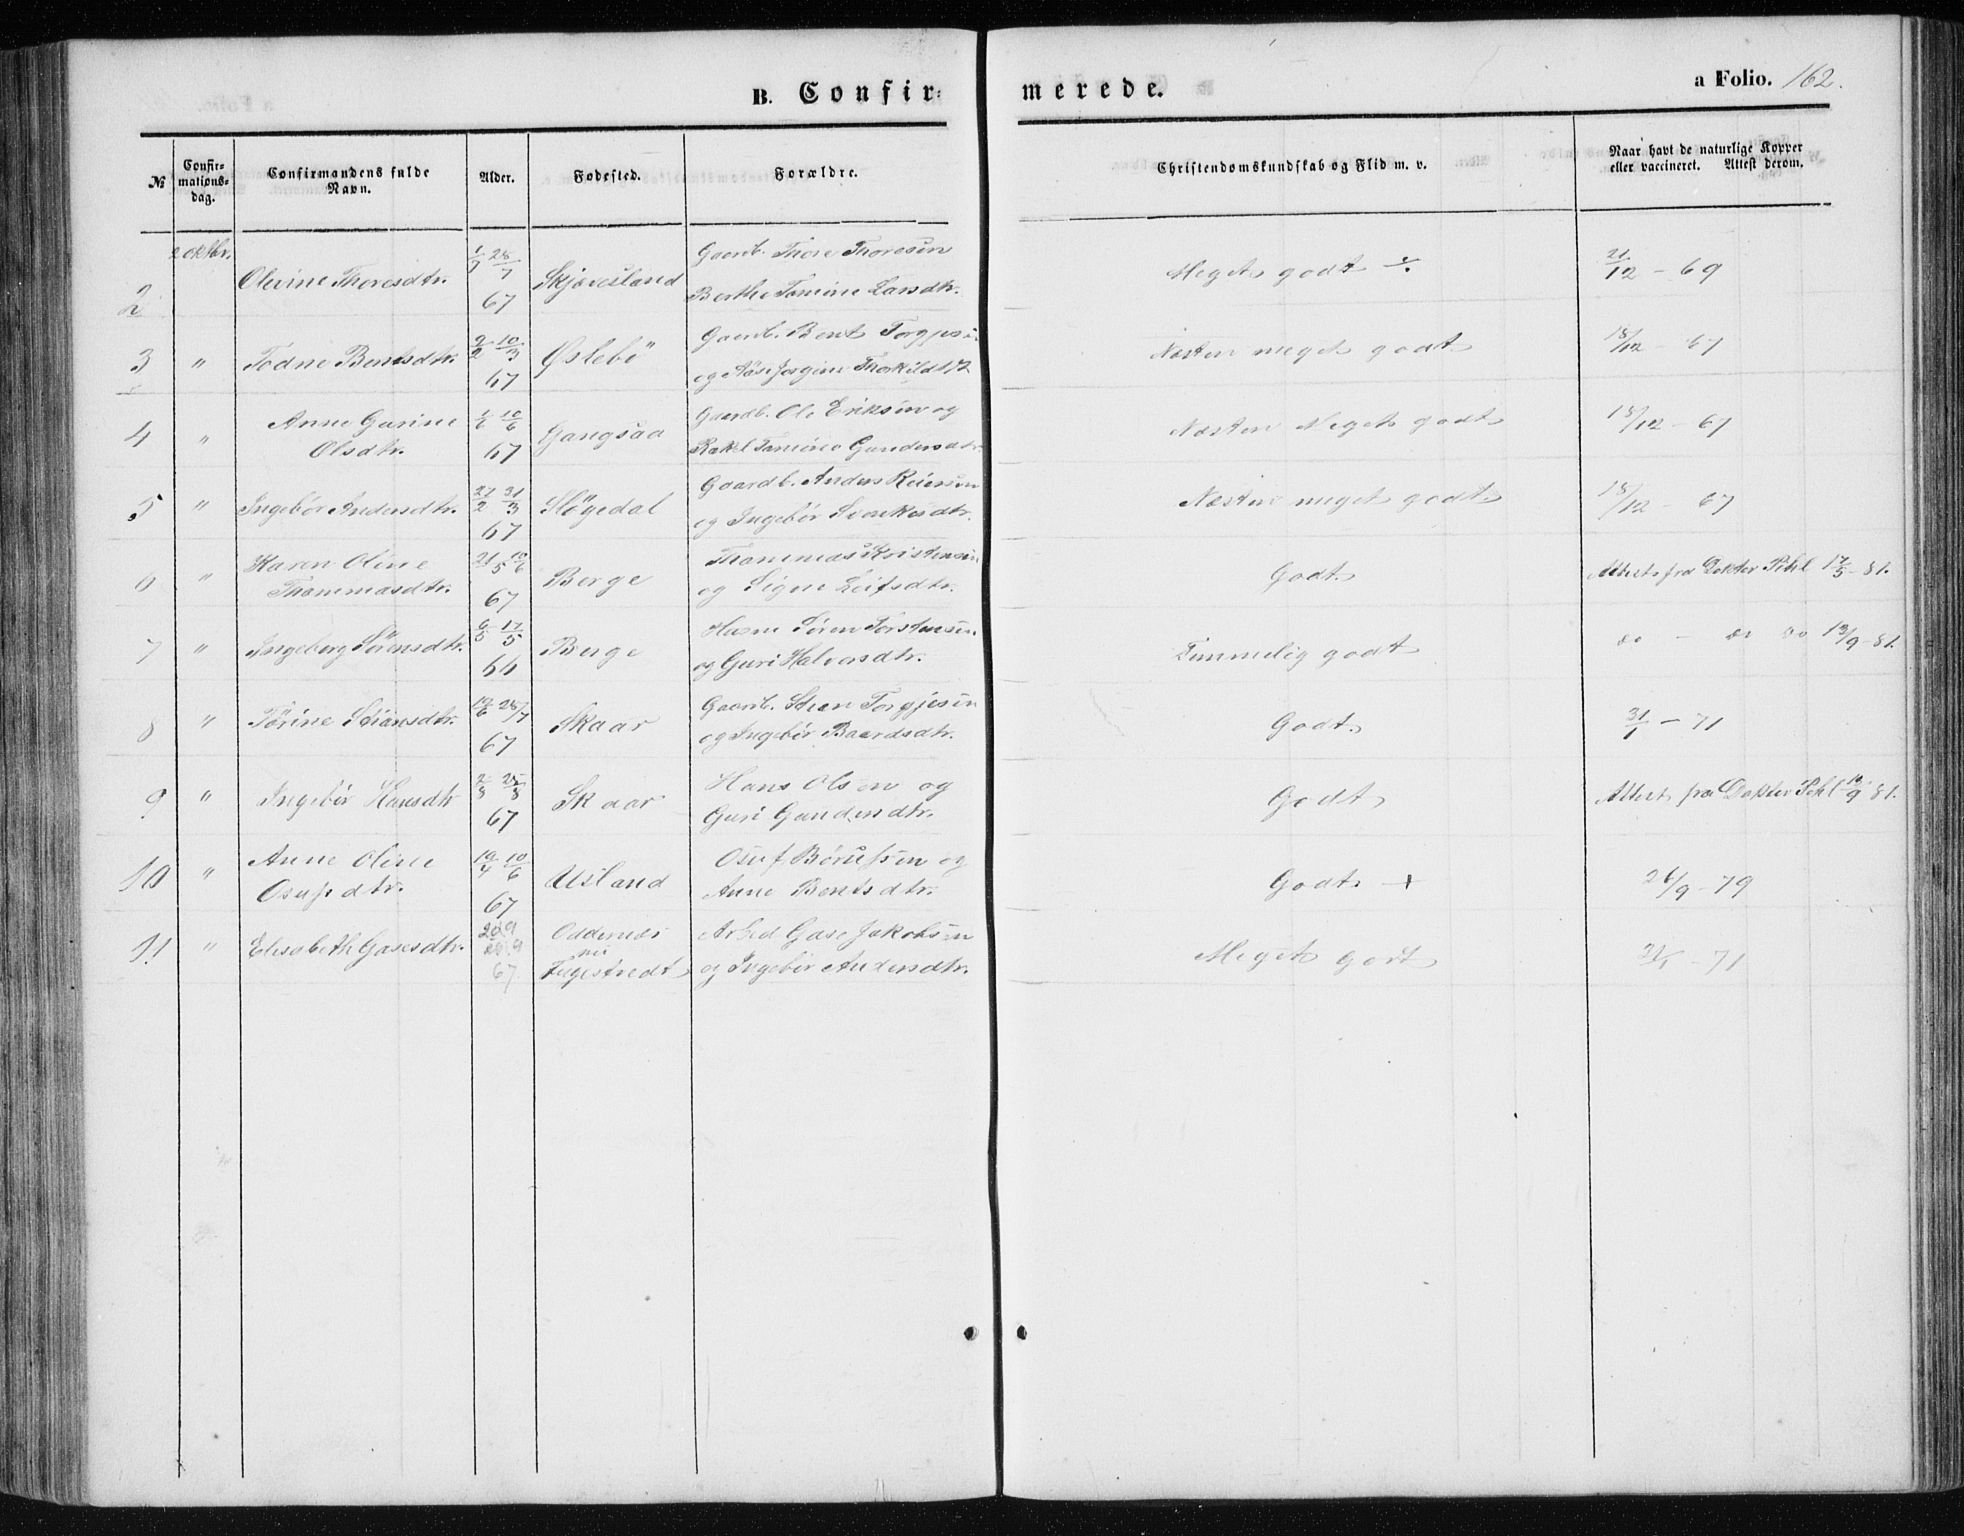 B. Confir-
merede.
a Folio. 162.
№
Confir-
mations-
dag.
Confirmandens fulde
Navn.
Alder.
Fødested.
Forældre.
Christendomskundskab og Flid m. v.
Naar havt de naturlige Kopper
eller vaccineret. Attest derom.
2 oktbr.
2 Olivine Thoresdtr. 28/7 67 Skjævesland
Gaardb. Thore Thoresen
Berthe Tomine Larsdtr.
Meget godt
21/12 - 69
3 " Todne Bentsdtr. 2/2 10/3 67 Øslebö
Gaardb. Bent
og
Næsten meget godt
18/12 - 67
4 " Anne Gurine
Olsdtr. 10/6 67 Gangsaa
Gaardb. Ole Eriksen og
Rakel Gundersdtr.
Næsten Meget godt
18/12 - 67
5 " Ingebör Andersdtr. 27/2 31/3 67 Slögedal
Gaardb. Anders Reiersen
og Ingebör
Næsten meget godt
18/12 - 67
6 " Karen Oline
Thommasdtr. 21/5 10/6 67 Berge
Thommas Kristensen
og Signe Leifsdtr.
Godt
Attest fra Dokter Pihl 17/5 - 81.
7 " Ingeborg Sörensdtr. 6/5 17/5 66 Berge
Husm Sören Torstensen
og Guri Halvorsdtr.
Temmelig godt
do - do do 13/9 - 81.
8 " Törine 28/7 67 Skaar
Gaardb. Torgjesen
og Ingebör Baardsdtr.
Godt
31/1 - 71
9 " Ingebör Hansdtr 2/8 25/8 67 Skaar
Hans Olsen og
Guri Gundersdtr.
Godt
Attest fra Dokter Pihl 13/9 81.
10 " Anne Oline
Osufsdtr. 19/4 10/6 67 Usland
Osuf Börufsen og
Anne Bentsdtr.
Godt +
26/9 - 79
11 " Elisabeth Gasesdtr. 67 Oddernes
nu
Arbed Gase Jakobsen
og Ingebör Andersdtr.
Meget godt
- 71